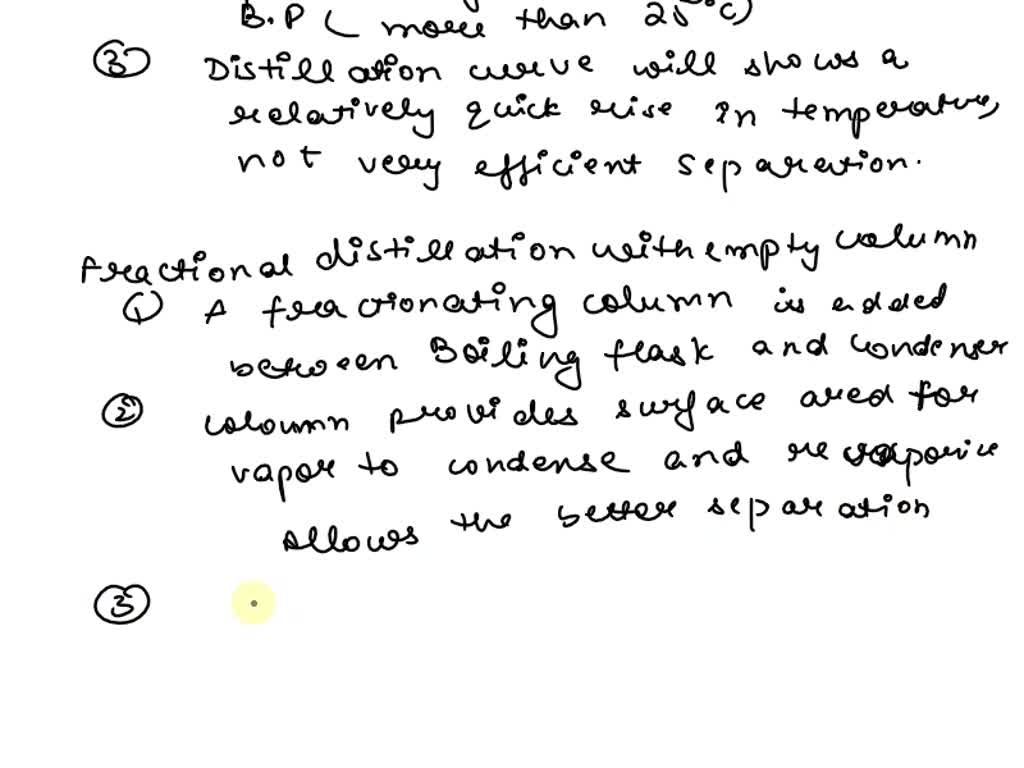 B.P ( more than 25°C)
③ Distillation curve will shows a
relatively quick rise in temperature,
not very efficient separation.
Fractional distillation with empty column
① A fractionating column is added
between Boiling flask and condenser
② coloumn provides surface ared for
vapor to condense and re vaporice
Allows the better separation
③